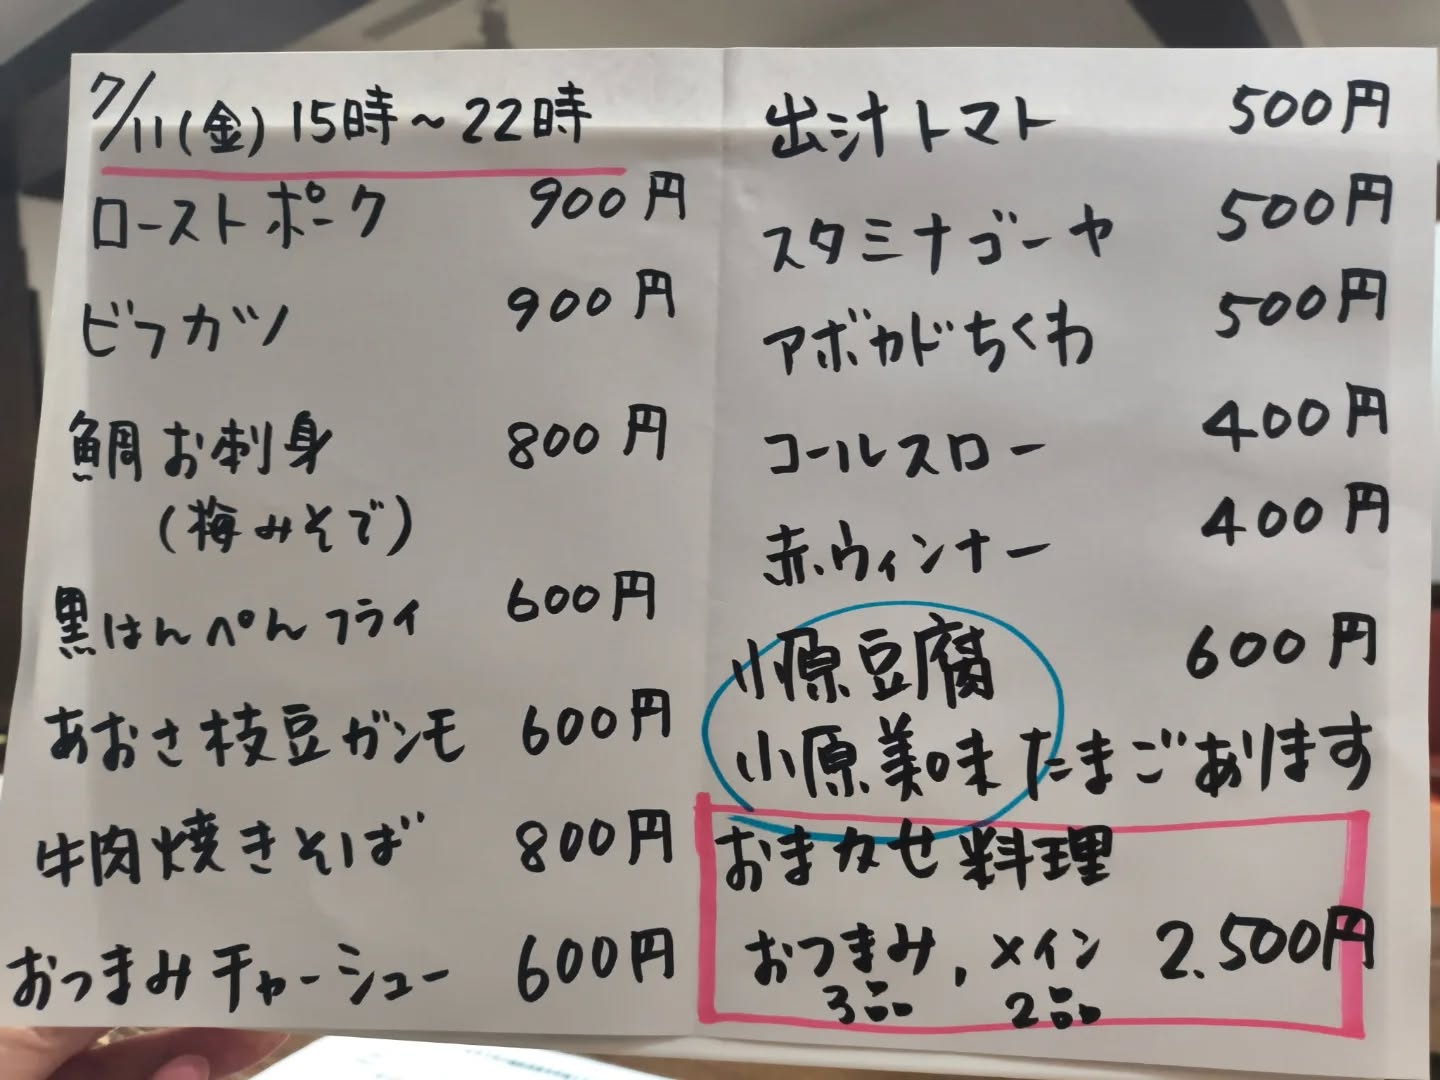 7/11(金) 15時～22時
ローストポーク 900円
ビフカツ 900円
鯛お刺身 800円
(梅みそで)
黒はんぺんフライ 600円
あおさ枝豆ガンモ 600円
牛肉焼きそば 800円
おつまみチャーシュー 600円
出汁トマト 500円
スタミナゴーヤ 500円
アボカドちくわ 500円
コールスロー 400円
赤ウィンナー 400円
小原豆腐 600円
小原美味たまごあります
おまかせ料理
おつまみ、メイン 2.500円
3品 2品